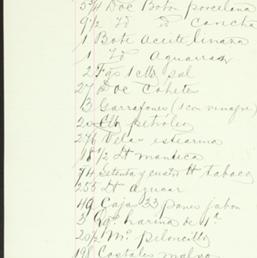 5¾ Doc Boton porcelana
9½ Id Id Concha
1 Bote Aceite linaza
1 Id Aguarras
2 Fgs 1 Cto sal
27 Doc Cohetes
3 Garrafones (1 con vinagre)
petróleo
276 Velas estearina
18½ lt manteca
74 Setenta y cuatro tt tabaco
255 lt Azucar
49 Cajas 33 panes jabon
3 harina de 1ª
20½ piloncillo
198 Costales